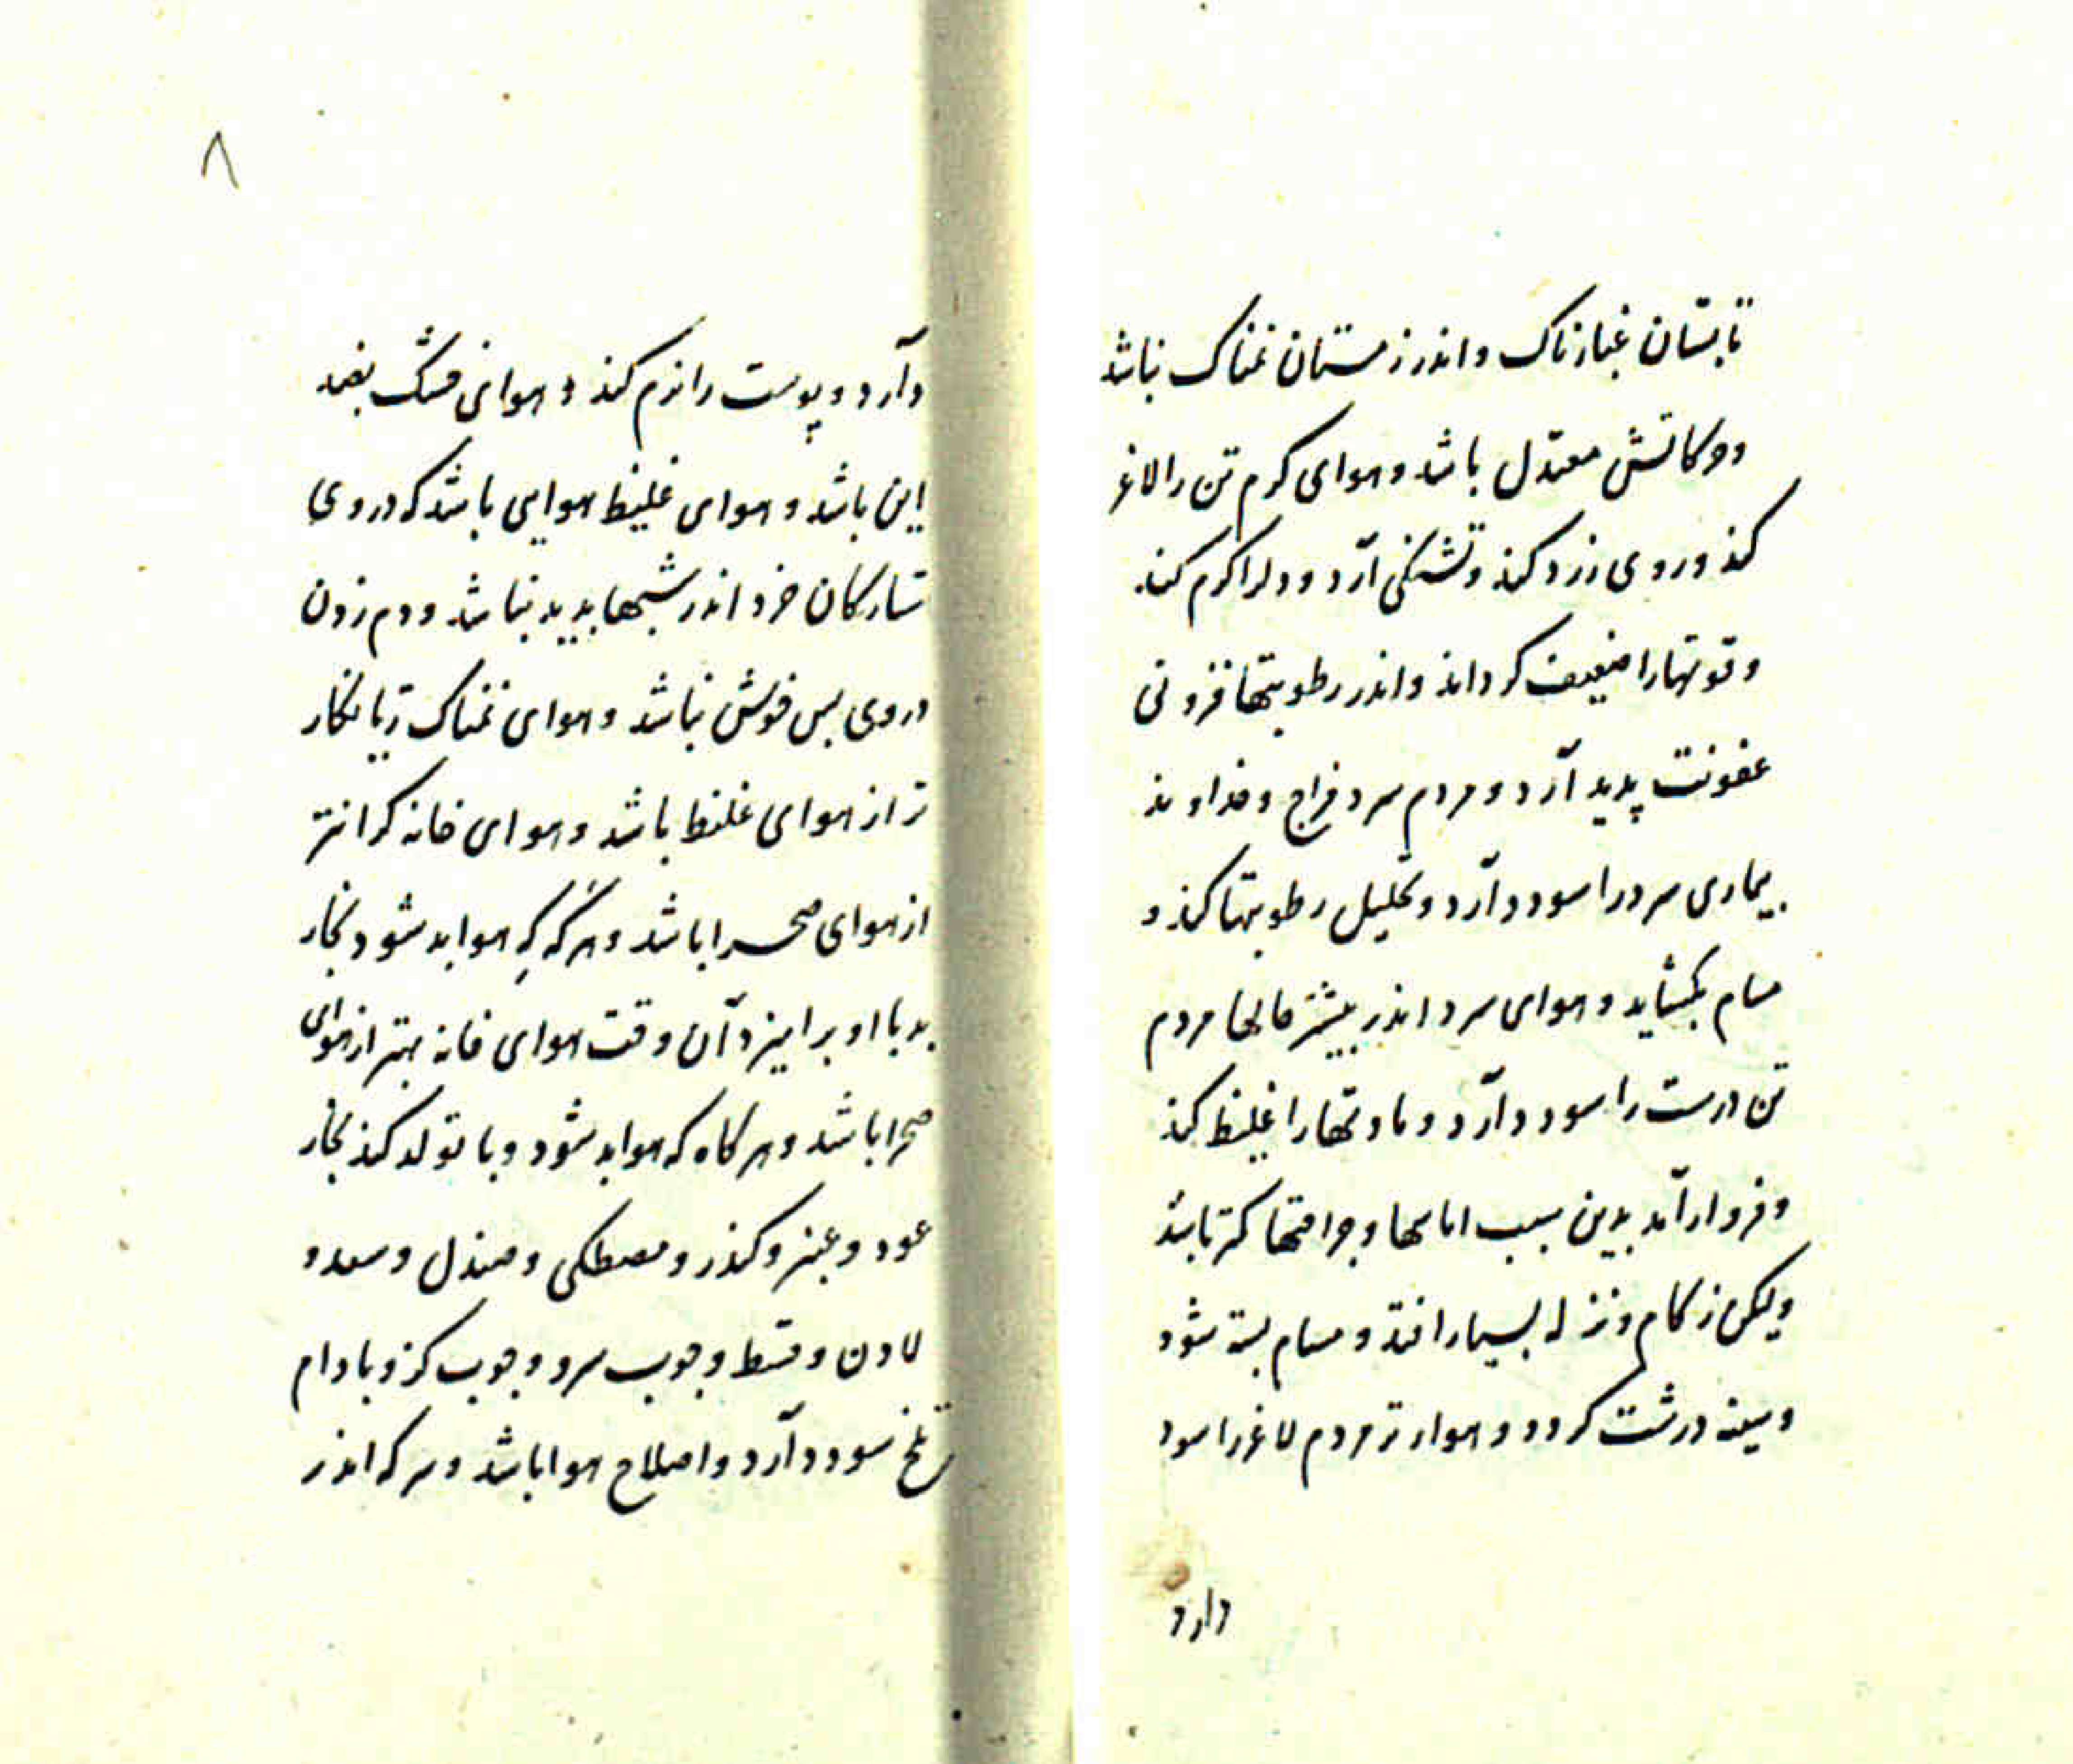 تابستان غبارناک و اندر زمستان نمناک نباشد
و حرکاتش معتدل باشد و هوای کرم تن را لاغر
کند و روی زرد کند و تشنکی آرد و دلرا کرم کند
و قوتها را ضعیف کرداند و اندر رطوبتها فزونی
عفونت پدید آرد و مردم سرد مزاج و خداوند
بیماری سرد را سود دارد و تحلیل رطوبتها کند و
مسام بکشاید و هوای سرد اندر بیشتر حالها مردم
تن درست را سود دارد و مادتها را غلیظ کند
و فرو ارد بدین سبب اماسها و جراحتها کمتر باشد
ولیکن زکام و نزله بسیار افتد و مسام بسته شود
و سینه درشت کردد و هوار تر مردم لاغر را سود
دارد
۸
دآرد و پوست را نرم کند و هوای خشک بضد
این باشد و هوای غلیظ هوایی باشد که در وی
ستارکان خرد اندر شبها پدید نباشد و دم زدن
در وی بس خوش نباشد و هوای نمناک زیانکار
تر از هوای غلیظ باشد و هوای خانه کرانتر
از هوای صحرا باشد و هرکه که هوا بد شود بخار
بد با او برامیزد آن وقت هوای خانه بهتر از هوای
صحرا باشد و هرکاه که هوا بد شود و با تولد کند بخار
عود و عنبر و کندر و مصطکی و صندل و سعد و
لادن و قسط و چوب سرو و چوب کز و بادام
تلخ سود دآرد و اصلاح هوا باشد و سرکه اندر